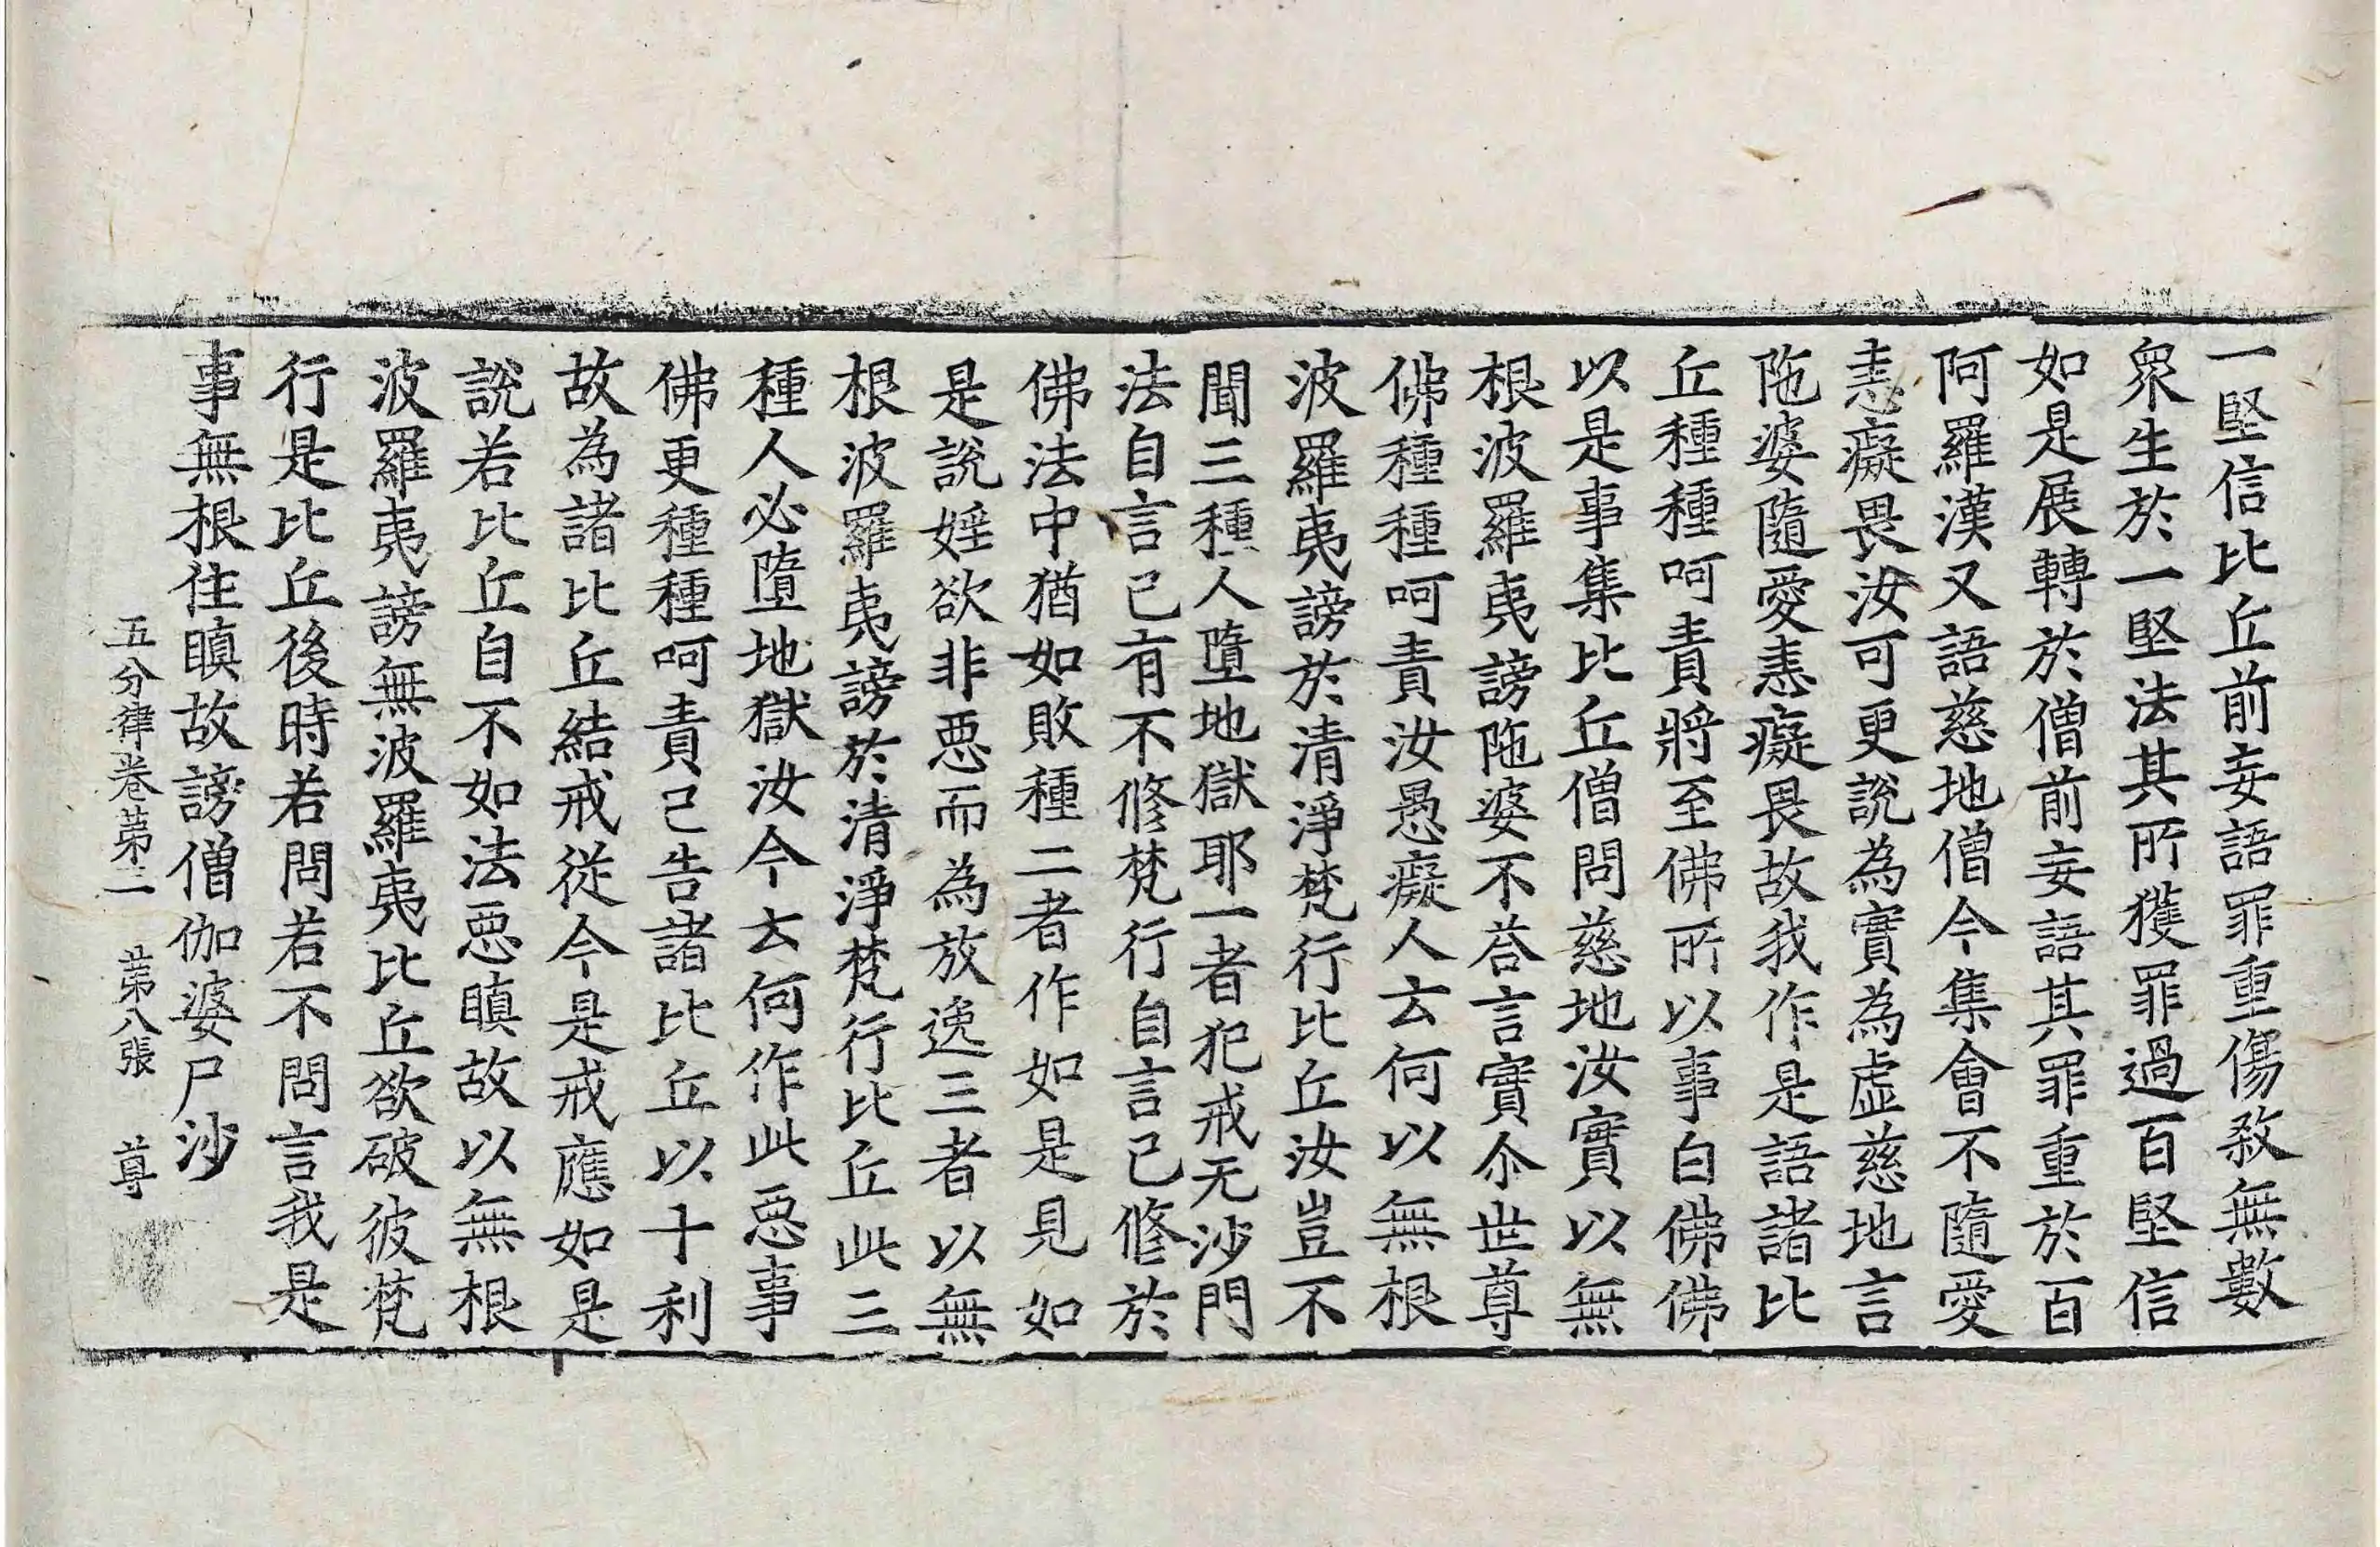 一堅信比丘前妄語罪重傷敎無數
衆生於一堅法其所獲罪過百堅信
如是展轉於僧前妄語其罪重於百
阿羅漢又語慈地僧今集會不隨愛
恚癡畏汝可更說為實為虛慈地言
陁婆隨愛恚癡畏故我作是語諸比
丘種種呵責將至佛所以事白佛佛
以是事集比丘僧問慈地汝實以無
根波羅夷謗陁婆不荅言實尒世尊
佛種種呵責汝愚癡人云何以無根
波羅夷謗於清淨梵行比丘汝豈不
聞三種人墮地獄耶一者犯戒无沙門
法自言已有不修梵行自言已修於
佛法中猶如敗種二者作如是見如
是說婬欲非惡而為放逸三者以無
根波羅夷謗於清淨梵行比丘此三
種人必墮地獄汝今云何作此惡事
佛更種種呵責已告諸比丘以十利
故為諸比丘結戒從今是戒應如是
說若比丘自不如法惡瞋故以無根
波羅夷謗無波羅夷比丘欲破彼梵
行是比丘後時若問若不問言我是
事無根住瞋故謗僧伽婆尸沙
五分律卷第二 第八張 尊